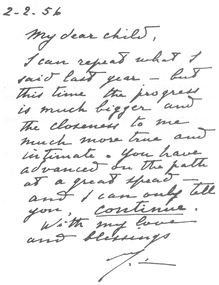 2-2-56
My dear child,
I can repeat what I
said last year – but
this time the progress
is much bigger and
the closeness to me
much more true and
intimate. You have
advanced on the path
at a great speed –
and I can only tell
you, continue
With my love
and blessings